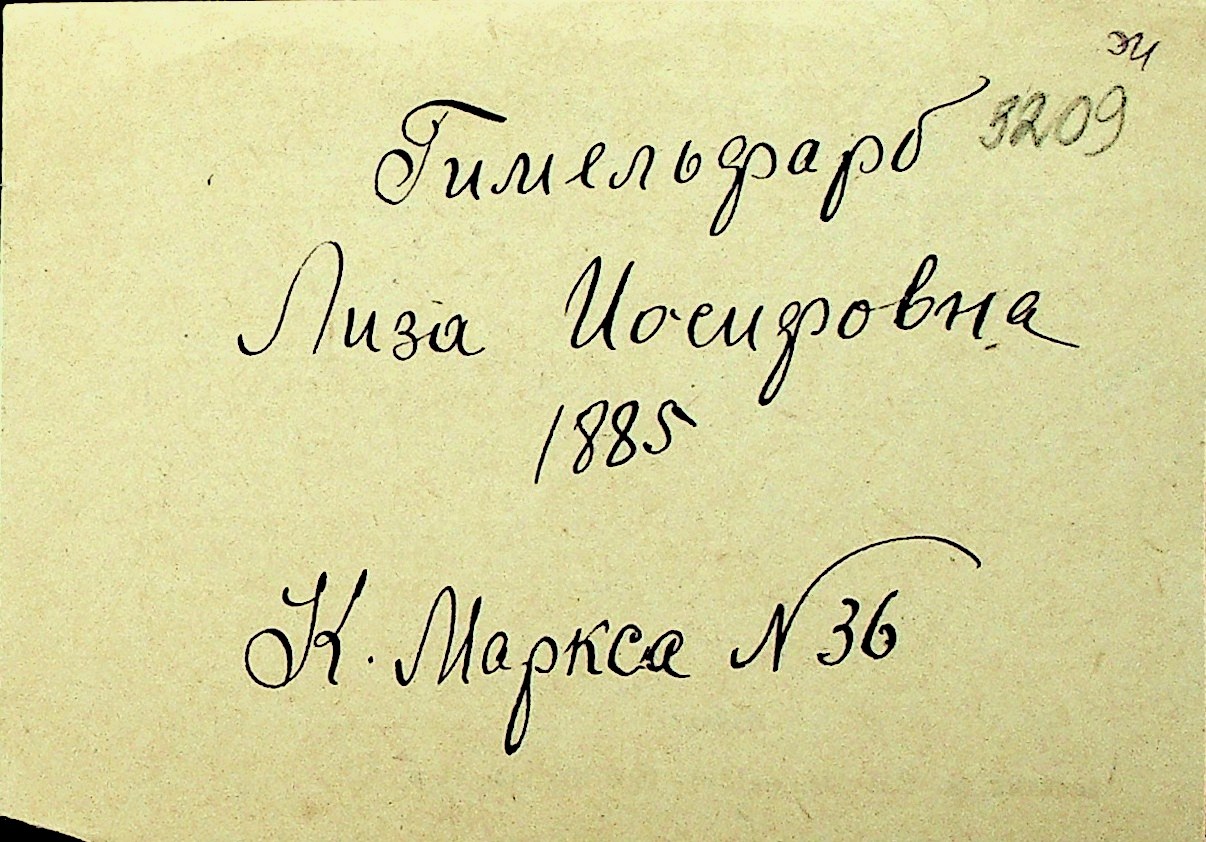 Гимельфарб
Лиза Иосифовна
1885
К. Маркса N 36